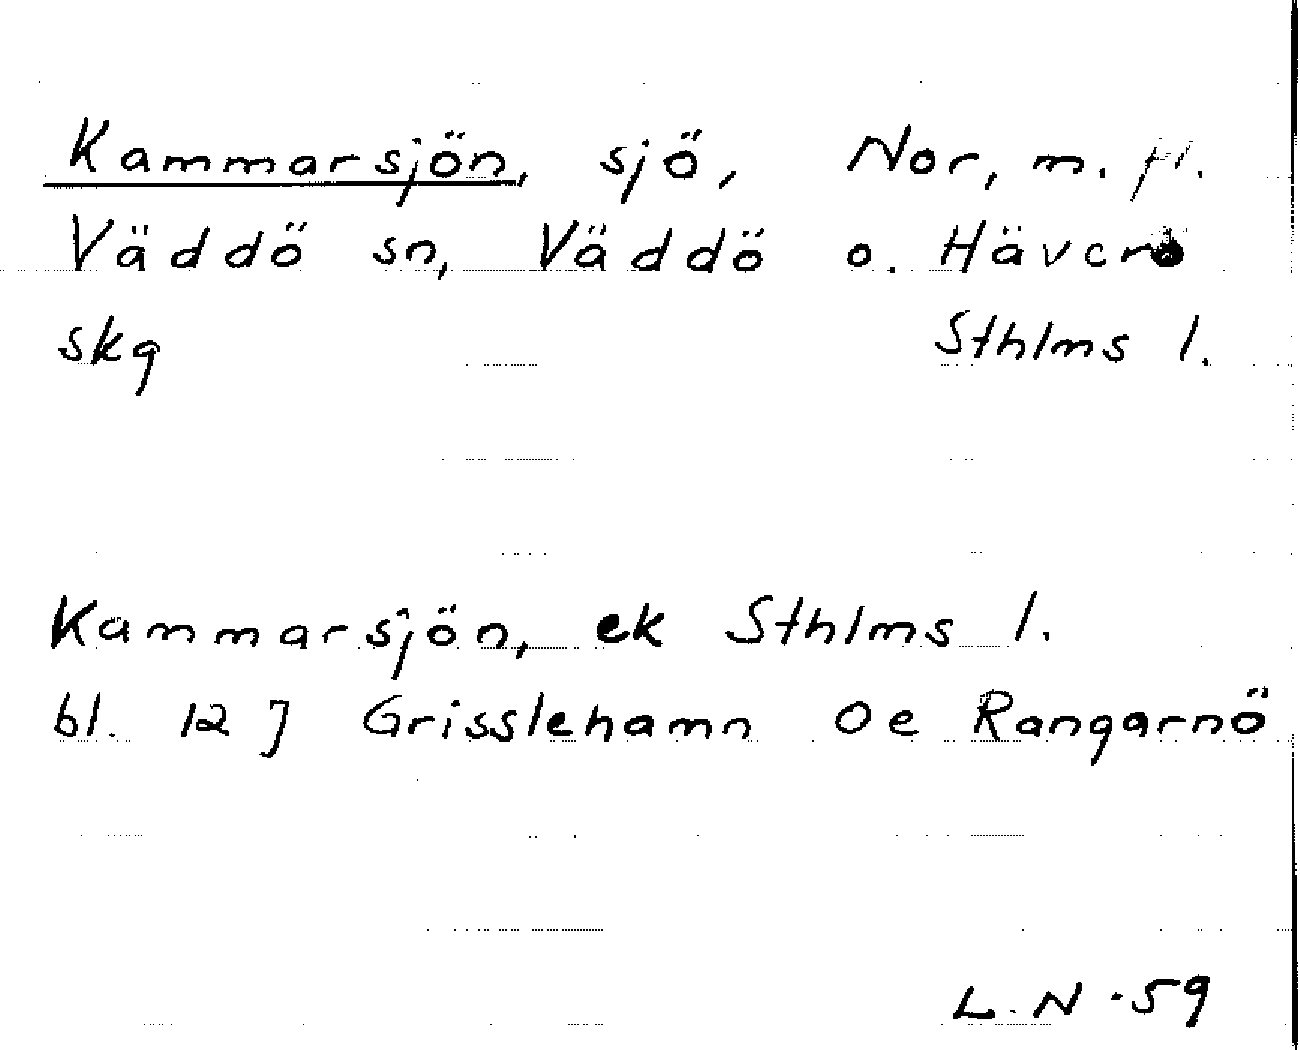 Kammarsjön, sjö, Nor, m. fl.
Väddö sn, Väddö o. Häverö
skg Sthlms l.
Kammarsjön, ek Sthlms l.
bl. 12 J Grisslehamn Oe Rangarnö
L.N-59